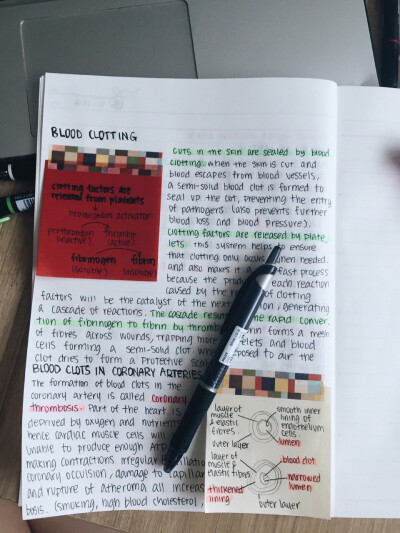 BLOOD CLOTTING
clotting factors are
released from platelets
prothrombin
(inactive)
thrombin
(active)
fibrinogen
(soluble)
fibrin
cuts in the skin are sealed by blood
clotting. when the skin is cut and
blood escapes from blood vessels,
a semi-solid blood clot is formed to
seal up the cut, preventing the entry
of pathogens (also prevents further
blood loss and blood pressure).
clotting factors are released by plate
lets. this system helps to ensure
that clotting only occurs when needed.
and also makes it a fast process
because the each reaction
caused by the of clotting
factors will be the catalyst of the generating
a cascade of reactions. The cascade the rapid conver
tion of fibrinogen to fibrin by forms a mesh
of fibres across wounds, trapping more platelets and blood
cells forming a semi-solid clot exposed to air the
clot dries to form a protective
BLOOD CLOTS IN CORONARY ARTERIES
The formation of blood clots in the
coronary artery is called coronary
thrombosis. Part of the heart is
deprived by oxygen and
hence cardiac muscle cells will
unable to produce enough
making contractions irregular
coronary occulsion, damage to
and rupture of atheroma all
bosis. (smoking, high blood cholesterol,
layer of
muscle
& elastic
fibres
outer layer
smooth inner
lining of
endothelium
cells.
lumen
layer of
muscle &
elastic fibres
blood clot
narrowed
lumen
thickened
lining
outer layer